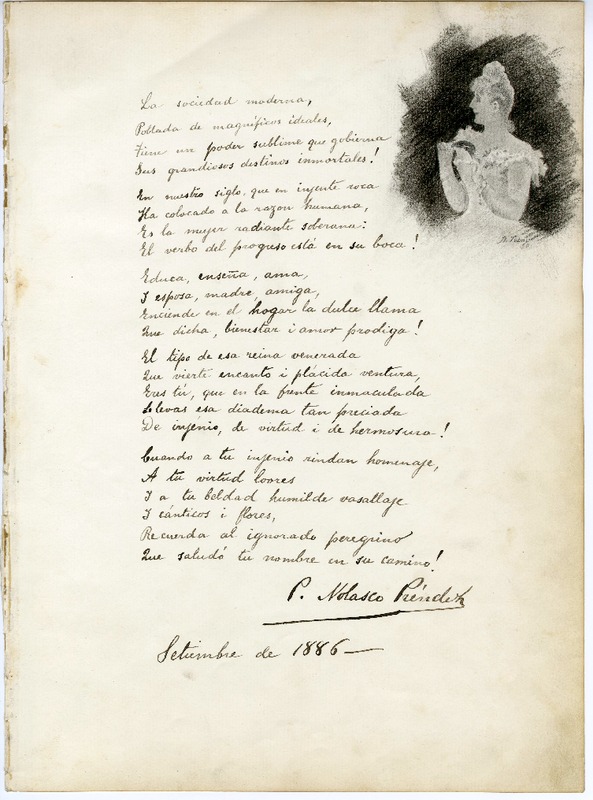 La sociedad moderna,
Poblada de magníficos ideales,
Tiene un poder sublime que gobierna
Sus grandiosos destinos inmortales!
En nuestro siglo, que en injente roca
Ha colocado a la razon humana,
Es la mujer radiante soberana:
El verbo del progreso está en su boca!
Educa, enseña, ama,
I esposa, madre, amiga,
Enciende en el hogar la dulce llama
Que dicha, bienestar i amor prodiga!
El tipo de esa reina venerada
Que vierte encanto i plácida ventura,
Eres tú, que en la frente inmaculada
Llevas esa diadema tan preciada
De injénio, de virtud i de hermosura!
Cuando a tu injenio rindan homenaje,
A tu virtud loores
I a tu beldad humilde vasallaje
I cánticos i flores,
Recuerda al ignorado peregrino
Que saludó tu nombre en su camino!
P. Nolasco Préndez
Setiembre de 1886—